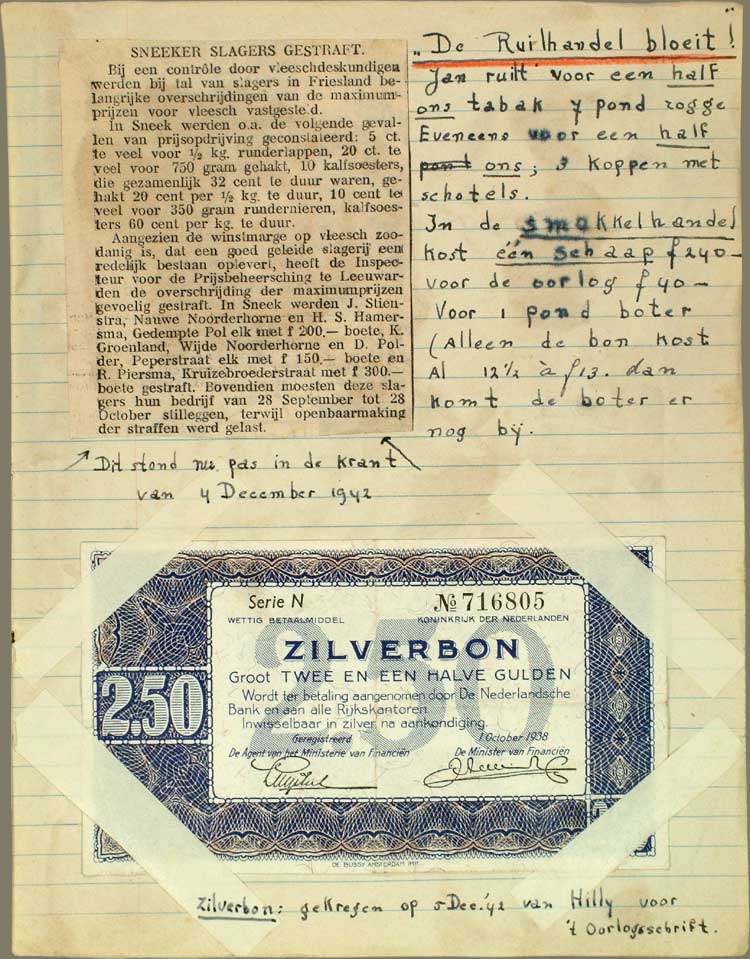 SNEEKER SLAGERS GESTRAFT.
Bij een contrôle door vleeschdeskundigen
werden bij tal van slagers in Friesland be-
langrijke overschrijdingen van de maximum-
prijzen voor vleesch vastgesteld.
In Sneek werden o.a. de volgende geval-
len van prijsopdrijving geconstateerd: 5 ct.
te veel voor ½ kg. runderlappen, 20 ct. te
veel voor 750 gram gehakt, 10 kalfsoesters,
die gezamenlijk 32 cent te duur waren, ge-
hakt 20 cent per ½ kg. te duur, 10 cent te
veel voor 350 gram rundernieren, kalfsoes-
ters 60 cent per kg. te duur.
Aangezien de winstmarge op vleesch zoo-
danig is, dat een goed geleide slagerij een
redelijk bestaan oplevert, heeft de Inspec-
teur voor de Prijsbeheersching te Leeuwar-
den de overschrijding der maximumprijzen
gevoelig gestraft. In Sneek werden J. Stien-
stra, Nauwe Noorderhorne en H. S. Hamer-
sma, Gedempte Pol elk met f 200.— boete, K.
Groenland, Wijde Noorderhorne en D. Pol-
der, Peperstraat elk met f 150.— boete en
R. Piersma, Kruizebroederstraat met f 300.—
boete gestraft. Bovendien moesten deze sla-
gers hun bedrijf van 28 September tot 28
October stilleggen, terwijl openbaarmaking
der straffen werd gelast.
Dit stond nu pas in de krant
van 4 December 1942
„De Ruilhandel bloeit!"
Jan ruilt voor een half
ons tabak 7 pond rogge
Eveneens voor een half
pont ons; 3 koppen met
schotels.
In de smokkelhandel
kost één schaap f 240-
voor de oorlog f 40-
Voor 1 pond boter
(Alleen de bon kost
Al 12½ à f13. dan
komt de boter er
nog bij.
Serie N
№ 716805
WETTIG BETAALMIDDEL
KONINKRIJK DER NEDERLANDEN
250
ZILVERBON
Groot TWEE EN EEN HALVE GULDEN
Wordt ter betaling aangenomen door De Nederlandsche
Bank en aan alle Rijkskantoren.
Inwisselbaar in zilver na aankondiging.
2.50
Geregistreerd
1 October 1938
De Agent van het Ministerie van Financiën
De Minister van Financiën
DE BUSSY AMSTERDAM
Zilverbon: gekregen op 5 Dec.'42 van Hilly voor
't Oorlogsschrift.